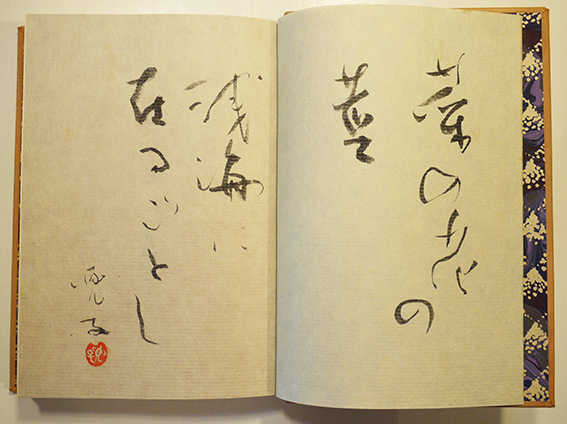 菜の花の
浅海に
在るごとし